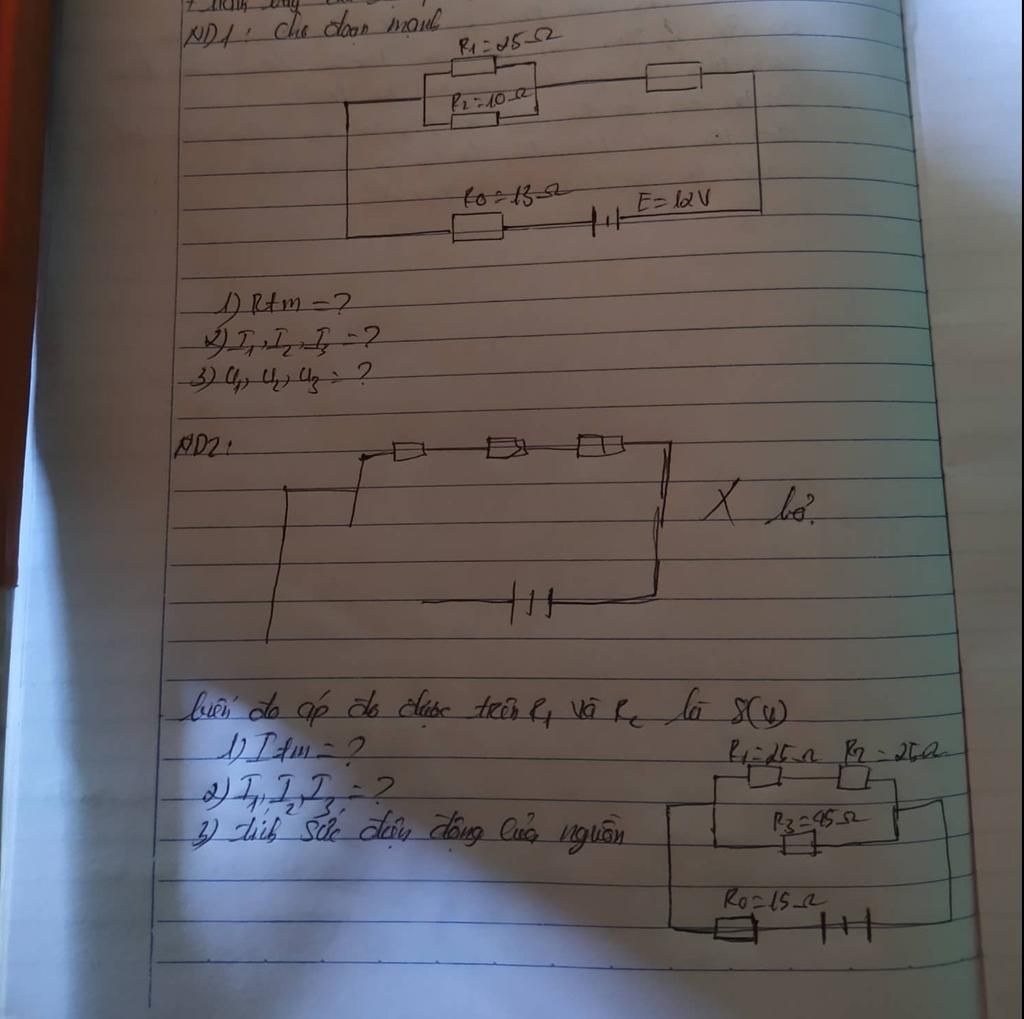 VD1: Cho đoạn mạnh
R1=25Ω
R2=10Ω
R0=13Ω
E=12V
1) Rtm=?
2) I1, I2, I3=?
3) U1, U2, U3=?
VD2:
X bỏ.
đo áp đo được trên R1 và là 8(V)
1) Itm=?
2) I1, I2, I3=?
3) tính sức điện động của nguồn
R1=25Ω R2=25Ω
R3=45Ω
R0=15Ω